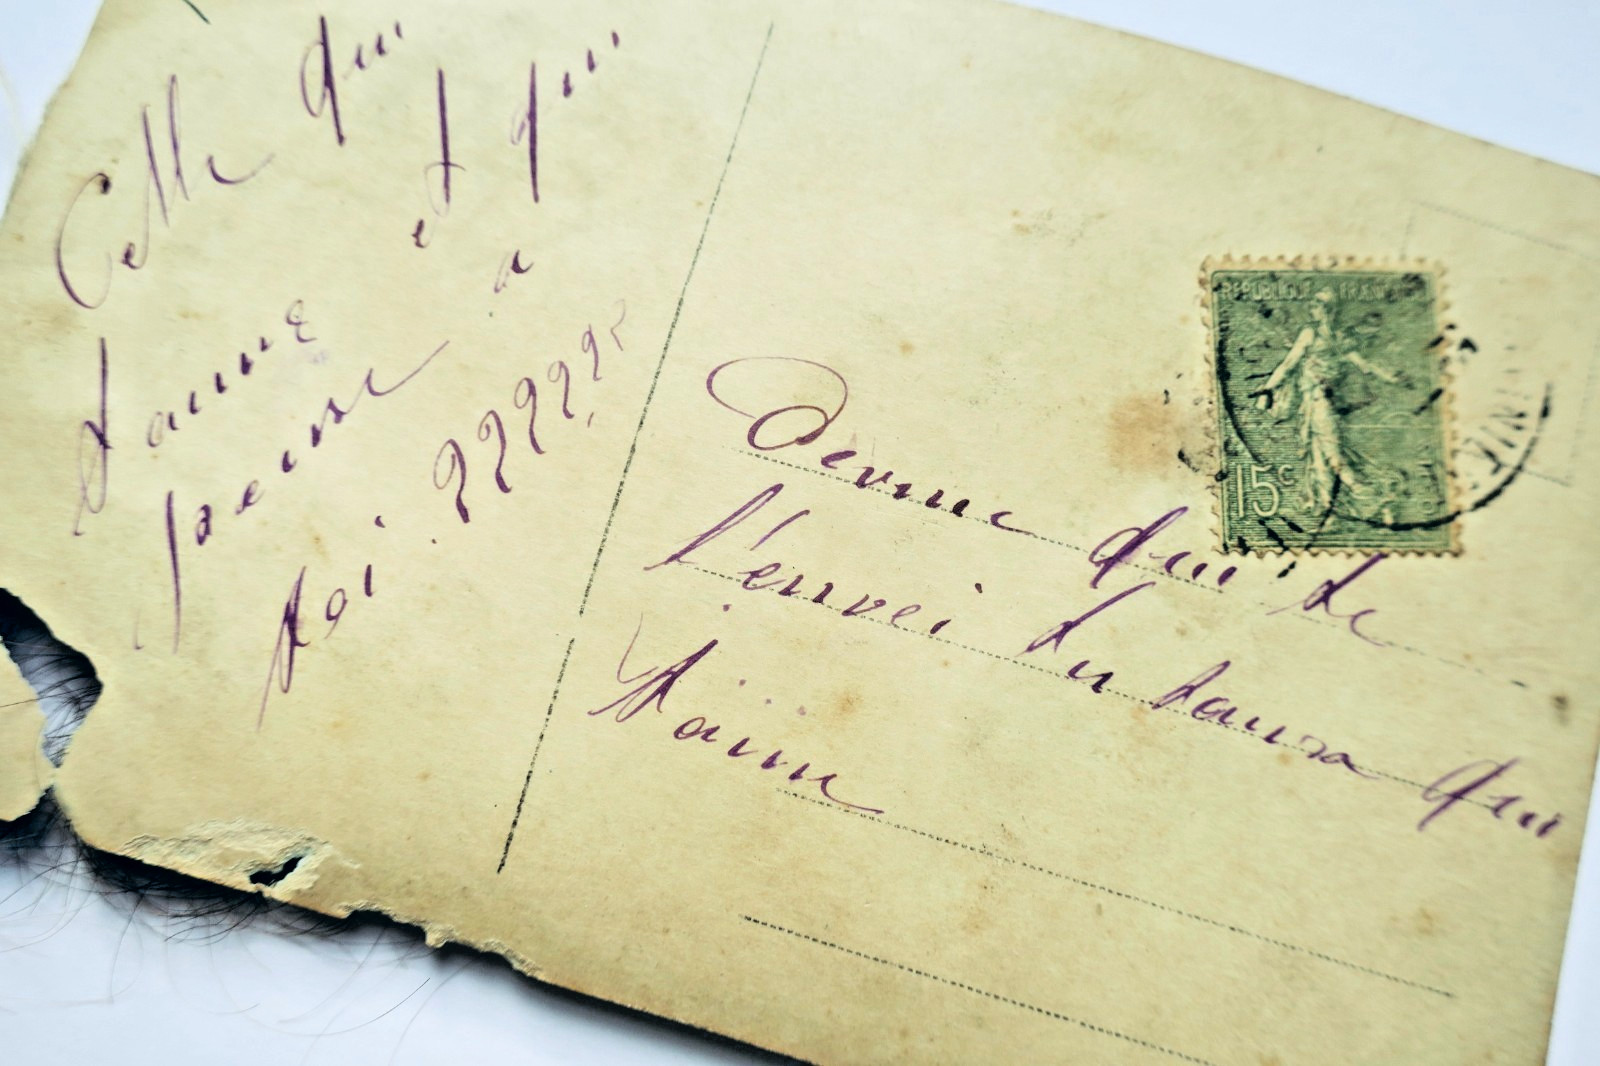 Celle qui
t'aime et qui
pense a
toi. ???????
Devine qui te
l'envoi tu saura qui
t'aime
REPUBLIQUE FRANCAISE
15c